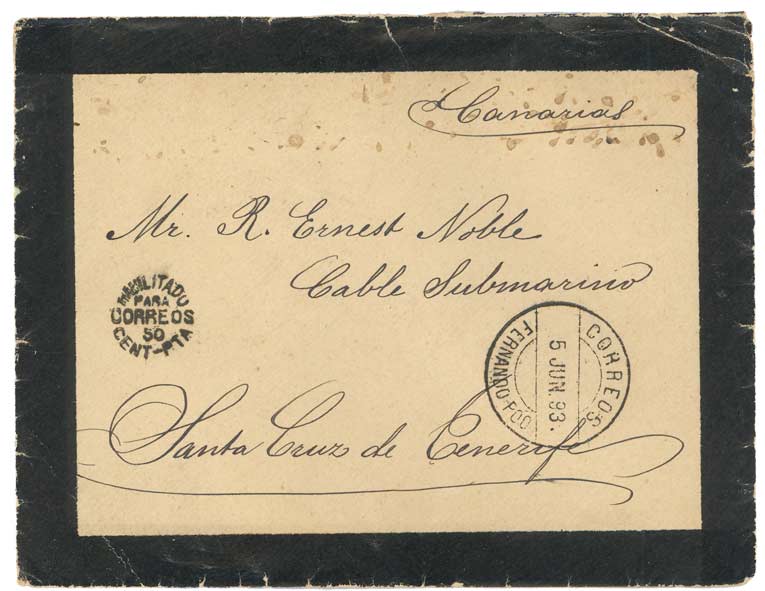 Canarias
Mr. R. Ernest Noble
Cable Submarino
HABILITADO
PARA
CORREOS
50
CENT-PTA
CORREOS
5 JUN. 93.
FERNANDO-POO
Santa Cruz de Tenerife